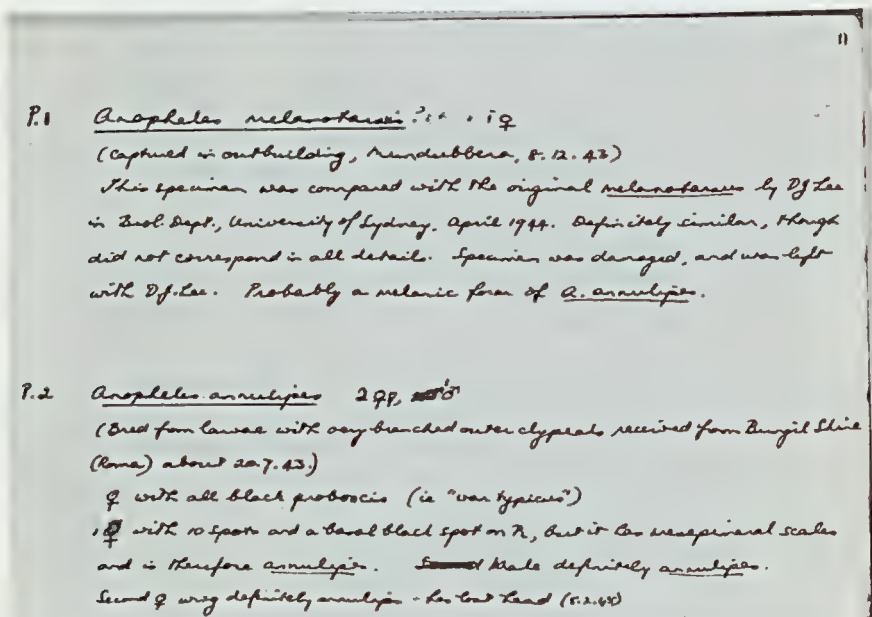 11
P.1 Anopheles melanotarsis 1♀
(Captured in outbuilding, Mundubbera, 8.12.43)
This specimen was compared with the original melanotarsus by DJ Lee
in Biol. Dept., University of Sydney, April 1944. Definitely similar, though
did not correspond in all details. Specimen was damaged, and was left
with D.J. Lee. Probably a melanic form of A. annulipes.
P.2 Anopheles annulipes 2♀♀, 1♂
(Bred from larvae with very branched outer clypeals received from Bungil Shire
(Roma) about 20.7.43.)
♀ with all black proboscis (ie "var typicus")
1♀ with 10 spots and a basal black spot on R, but it has mesepimeral scales
and is therefore annulipes. Male definitely annulipes.
Second ♀ wing definitely annulipes - has lost head